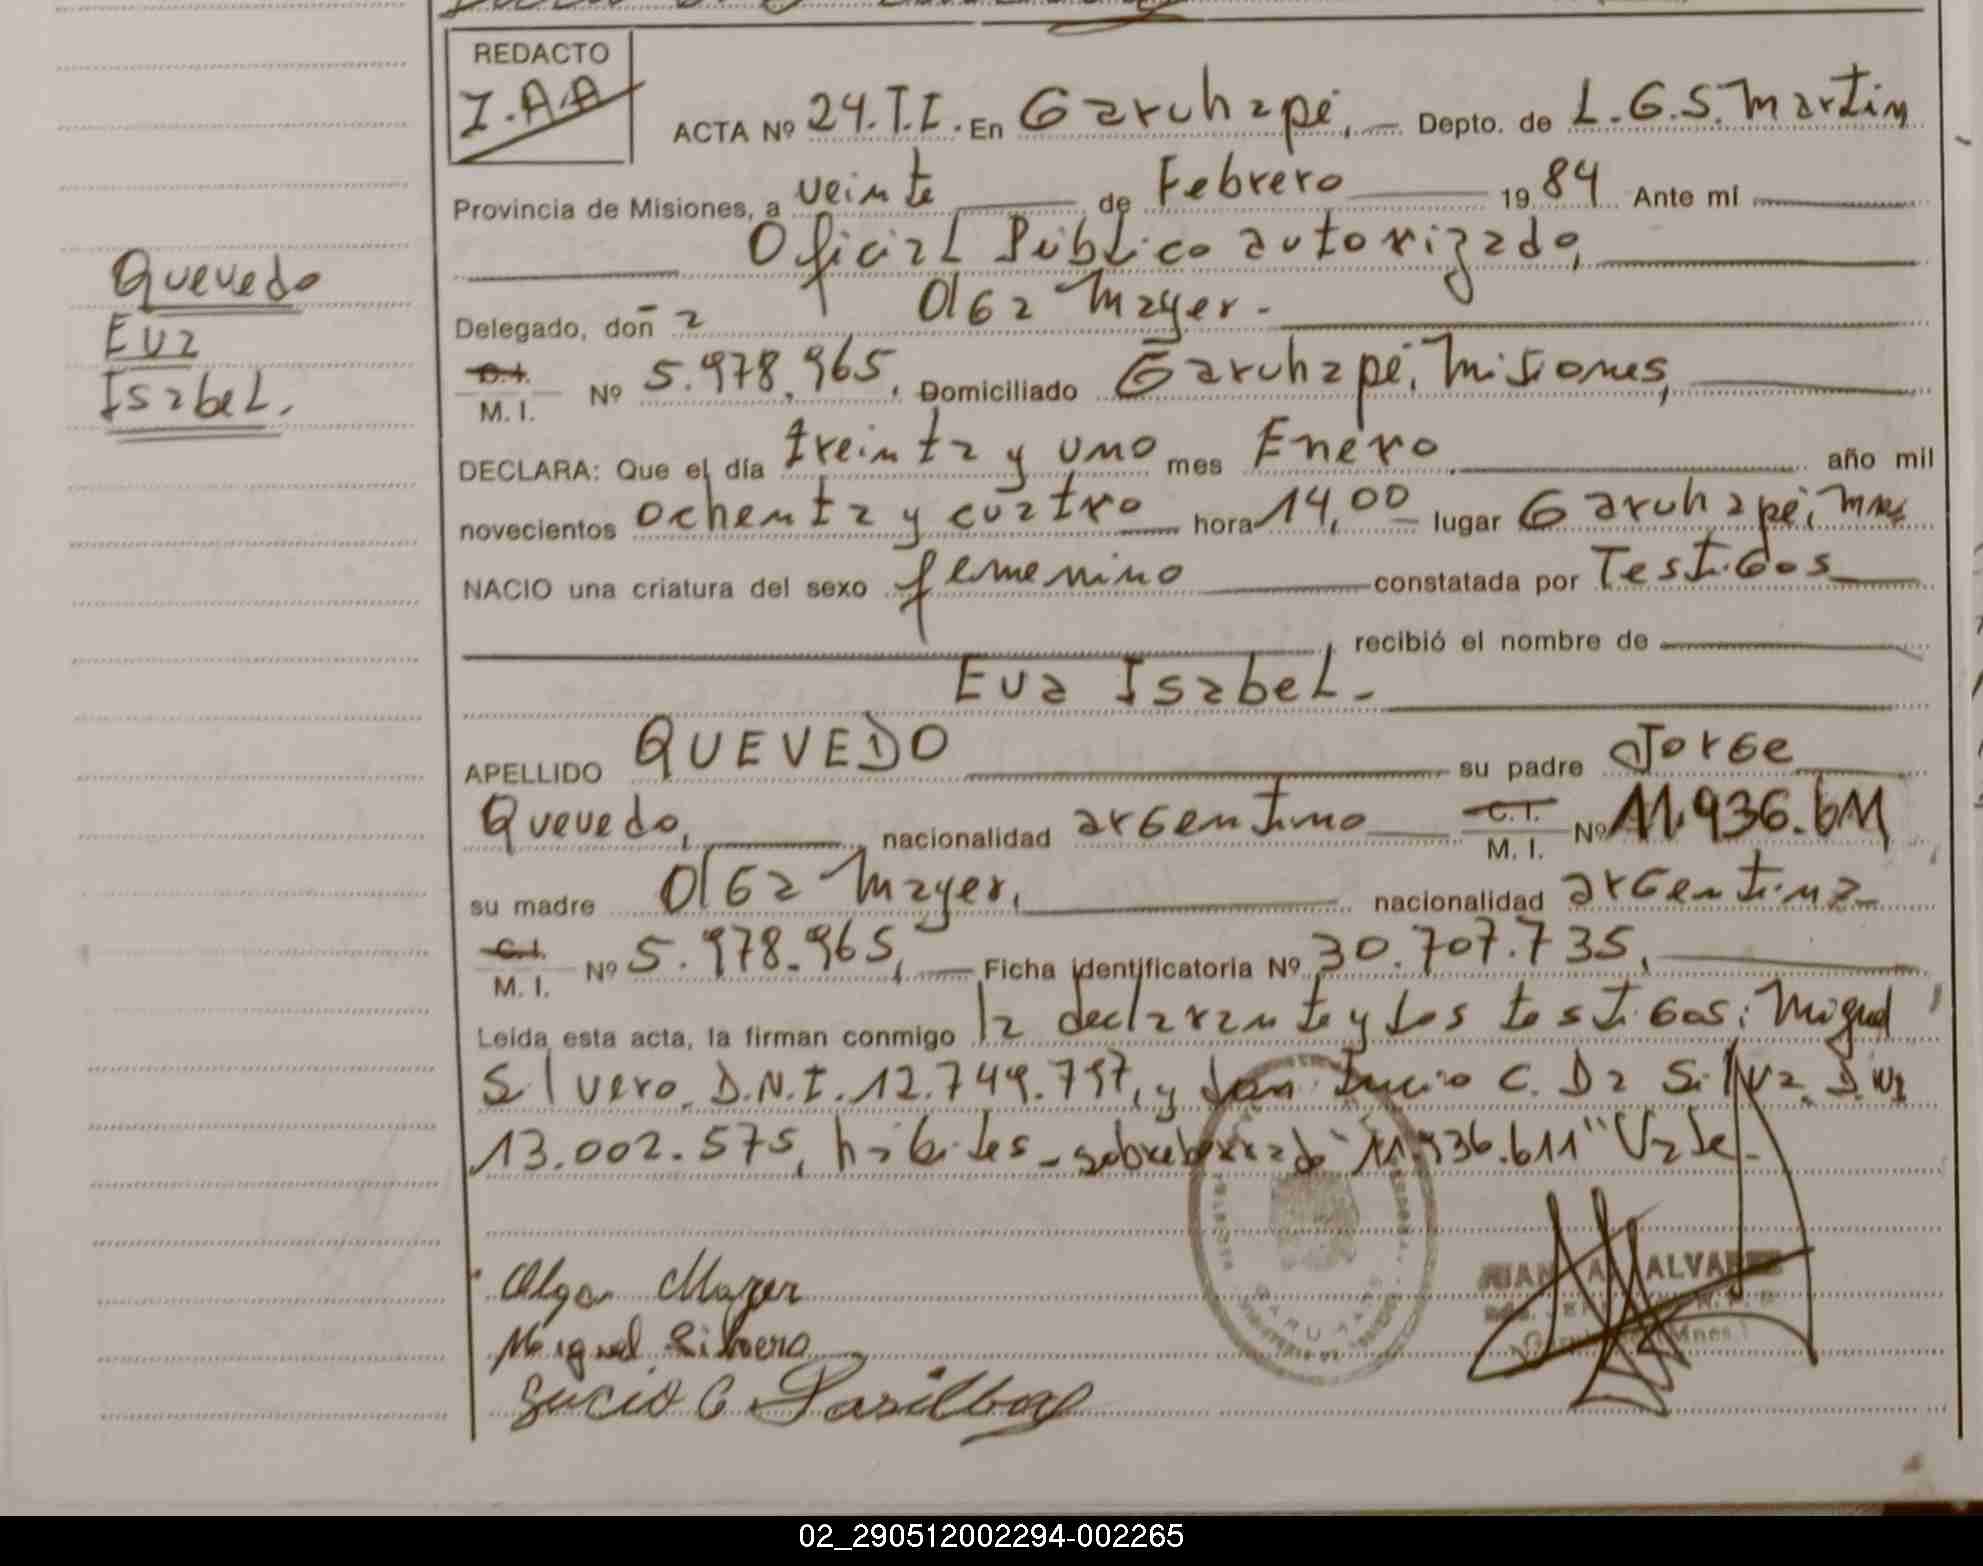 REDACTO
I.A.A
ACTA Nº 24.T.I. En Garuhapé, Depto. de L.G.S. Martin
Provincia de Misiones, a veinte de Febrero 1984 Ante mí
Oficial Público autorizado,
Delegado, doña Olga Mayer.-
C.I. M. I. Nº 5.978.965, Domiciliado Garuhapé, Misiones,
DECLARA: Que el día treinta y uno mes Enero año mil
novecientos ochenta y cuatro hora 14,00 lugar Garuhapé, Mnes
NACIO una criatura del sexo femenino constatada por Testigos
recibió el nombre de
Eva Isabel.-
APELLIDO QUEVEDO su padre Jorge
Quevedo, nacionalidad argentino C.I. M. I. Nº 11.936.611
su madre Olga Mayer, nacionalidad argentina
C.I. M. I. Nº 5.978.965, Ficha identificatoria Nº 30.707.735,
Leida esta acta, la firman conmigo la declarante y los testigos: Miguel
Silvero D.N.I. 12.749.797, y don Lucio C. Da Silva D.N.I
13.002.575, hábiles - sobreborrado "11.936.611" Vale.-
Quevedo
Eva
Isabel.
Olga Mayer
Miguel Silvero
Lucio C Dasilva
JUAN A. ALVAREZ
02_290512002294-002265